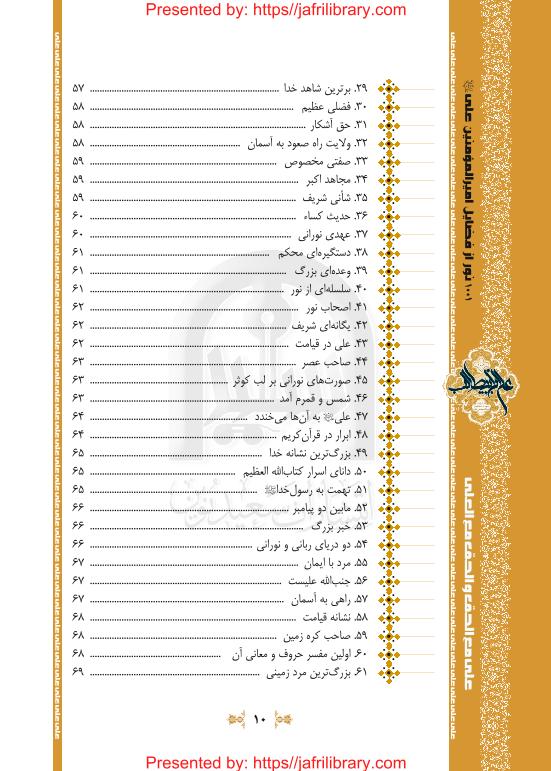 Presented by: https://jafrilibrary.com
۲۹. برترین شاهد خدا ........ ۵۷
۳۰. فضلی عظیم ........ ۵۸
۳۱. حق آشکار ........ ۵۸
۳۲. ولایت راه صعود به آسمان ........ ۵۸
۳۳. صفتی مخصوص ........ ۵۹
۳۴. مجاهد اکبر ........ ۵۹
۳۵. شأنی شریف ........ ۵۹
۳۶. حدیث کساء ........ ۶۰
۳۷. عهدی نورانی ........ ۶۰
۳۸. دستگیره‌ای محکم ........ ۶۱
۳۹. وعده‌ای بزرگ ........ ۶۱
۴۰. سلسله‌ای از نور ........ ۶۱
۴۱. اصحاب نور ........ ۶۲
۴۲. یگانه‌ای شریف ........ ۶۲
۴۳. علی در قیامت ........ ۶۲
۴۴. صاحب عصر ........ ۶۳
۴۵. صورت‌های نورانی بر لب کوثر ........ ۶۳
۴۶. شمس و قمرم آمد ........ ۶۳
۴۷. علی به آن‌ها می‌خندد ........ ۶۴
۴۸. ابرار در قرآن‌کریم ........ ۶۴
۴۹. بزرگ‌ترین نشانه خدا ........ ۶۵
۵۰. دانای اسرار کتاب‌الله العظیم ........ ۶۵
۵۱. تهمت به رسول‌خداﷺ ........ ۶۵
۵۲. مابین دو پیامبر ........ ۶۶
۵۳. خبر بزرگ ........ ۶۶
۵۴. دو دریای ربانی و نورانی ........ ۶۶
۵۵. مرد با ایمان ........ ۶۷
۵۶. جنب‌الله علیست ........ ۶۷
۵۷. راهی به آسمان ........ ۶۷
۵۸. نشانه قیامت ........ ۶۸
۵۹. صاحب کره زمین ........ ۶۸
۶۰. اولین مفسر حروف و معانی آن ........ ۶۸
۶۱. بزرگ‌ترین مرد زمینی ........ ۶۹
۱۰
۱۰۰۱ نور از فضایل امیرالمؤمنین علی
علی مع الحق و الحق مع العلی
Presented by: https://jafrilibrary.com